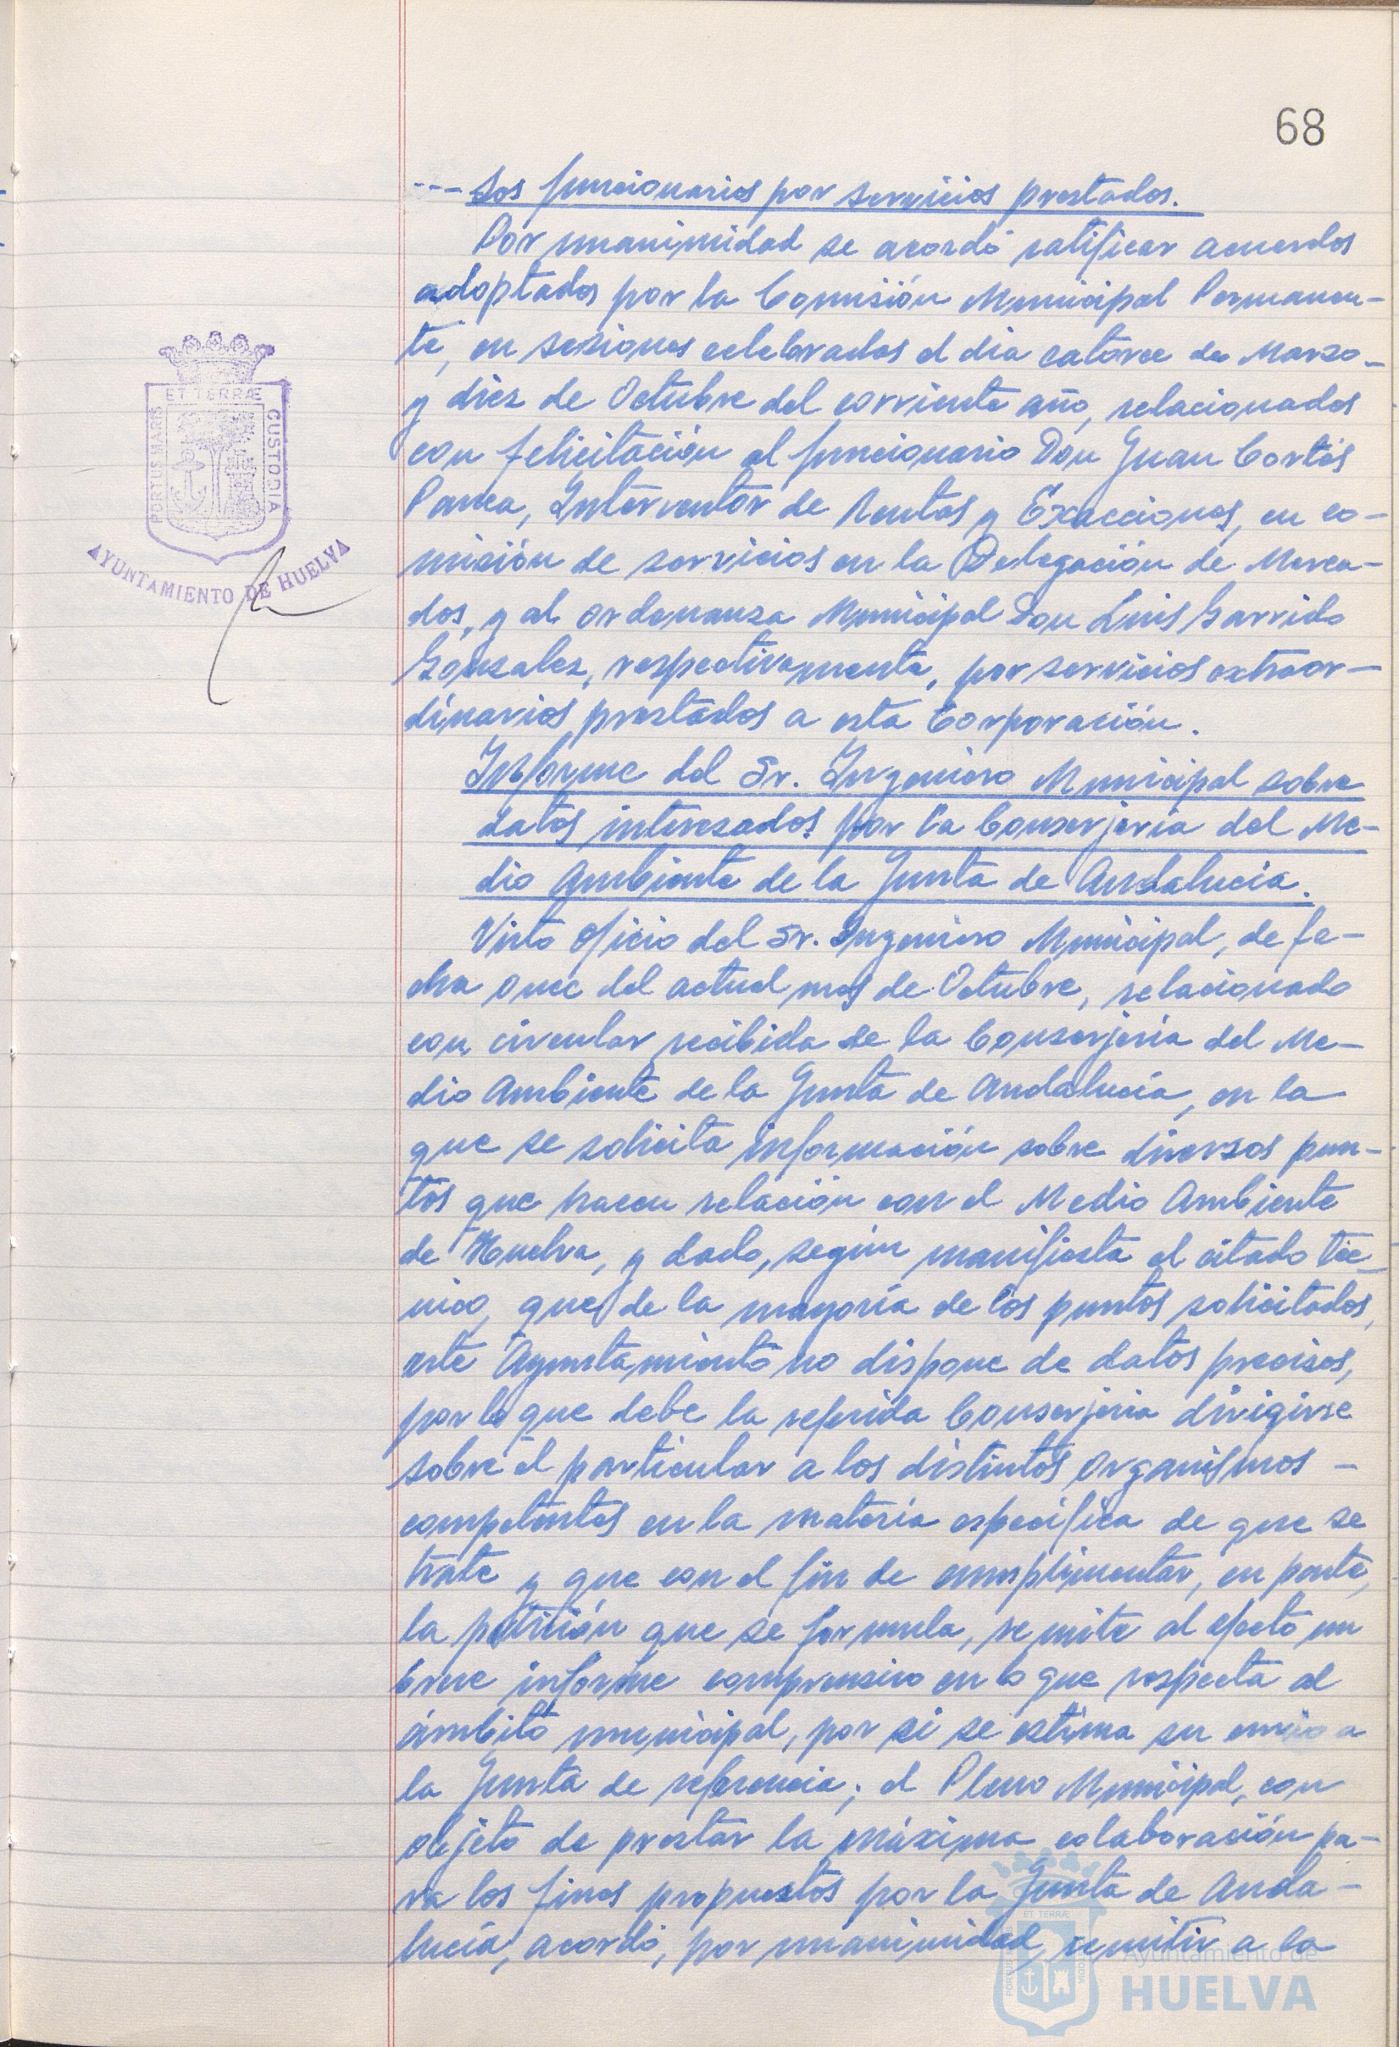 68
--- Los funcionarios por servicios prestados.
Por unanimidad se acordó ratificar acuerdos
adoptados por la Comisión Municipal Permanen-
te, en sesiones celebradas el dia catorce de Marzo
y diez de Octubre del corriente año, relacionados
con felicitación al funcionario Don Juan Cortés
Parea, Interventor de Rentas y Exacciones, en co-
misión de servicios en la Delegación de Merca-
dos, y al ordenanza Municipal Don Luis Garrido
Gonzalez, respectivamente, por servicios extraor-
dinarios prestados a esta Corporación.
Informe del Sr. Ingeniero Municipal sobre
datos interesados por la Conserjería del Me-
dio Ambiente de la Junta de Andalucía.
Visto oficio del Sr. Ingeniero Municipal, de fe-
cha once del actual mes de Octubre, relacionado
con circular recibida de la Conserjería del Me-
dio Ambiente de la Junta de Andalucía, en la
que se solicita información sobre diversos pun-
tos que hacen relación con el Medio Ambiente
de Huelva, y dado, según manifiesta el citado téc-
nico, que de la mayoría de los puntos solicitados,
este Ayuntamiento no dispone de datos precisos,
por lo que debe la referida Conserjeria dirigirse
sobre el particular a los distintos organismos -
competentes en la materia específica de que se
trate y que con el fin de cumplimentar, en parte,
la petición que se formula, remite al efecto un
breve informe comprensivo en lo que respecta al
ámbito municipal, por si se estima su envio a
la Junta de referencia; el Pleno Municipal, con
objeto de prestar la máxima colaboración pa-
ra los fines propuestos por la Junta de Anda-
lucía, acordó, por unanimidad, remitir a la
PORTUS MARIS ET TERRÆ CUSTODIA
AYUNTAMIENTO DE HUELVA
Ayuntamiento de
HUELVA